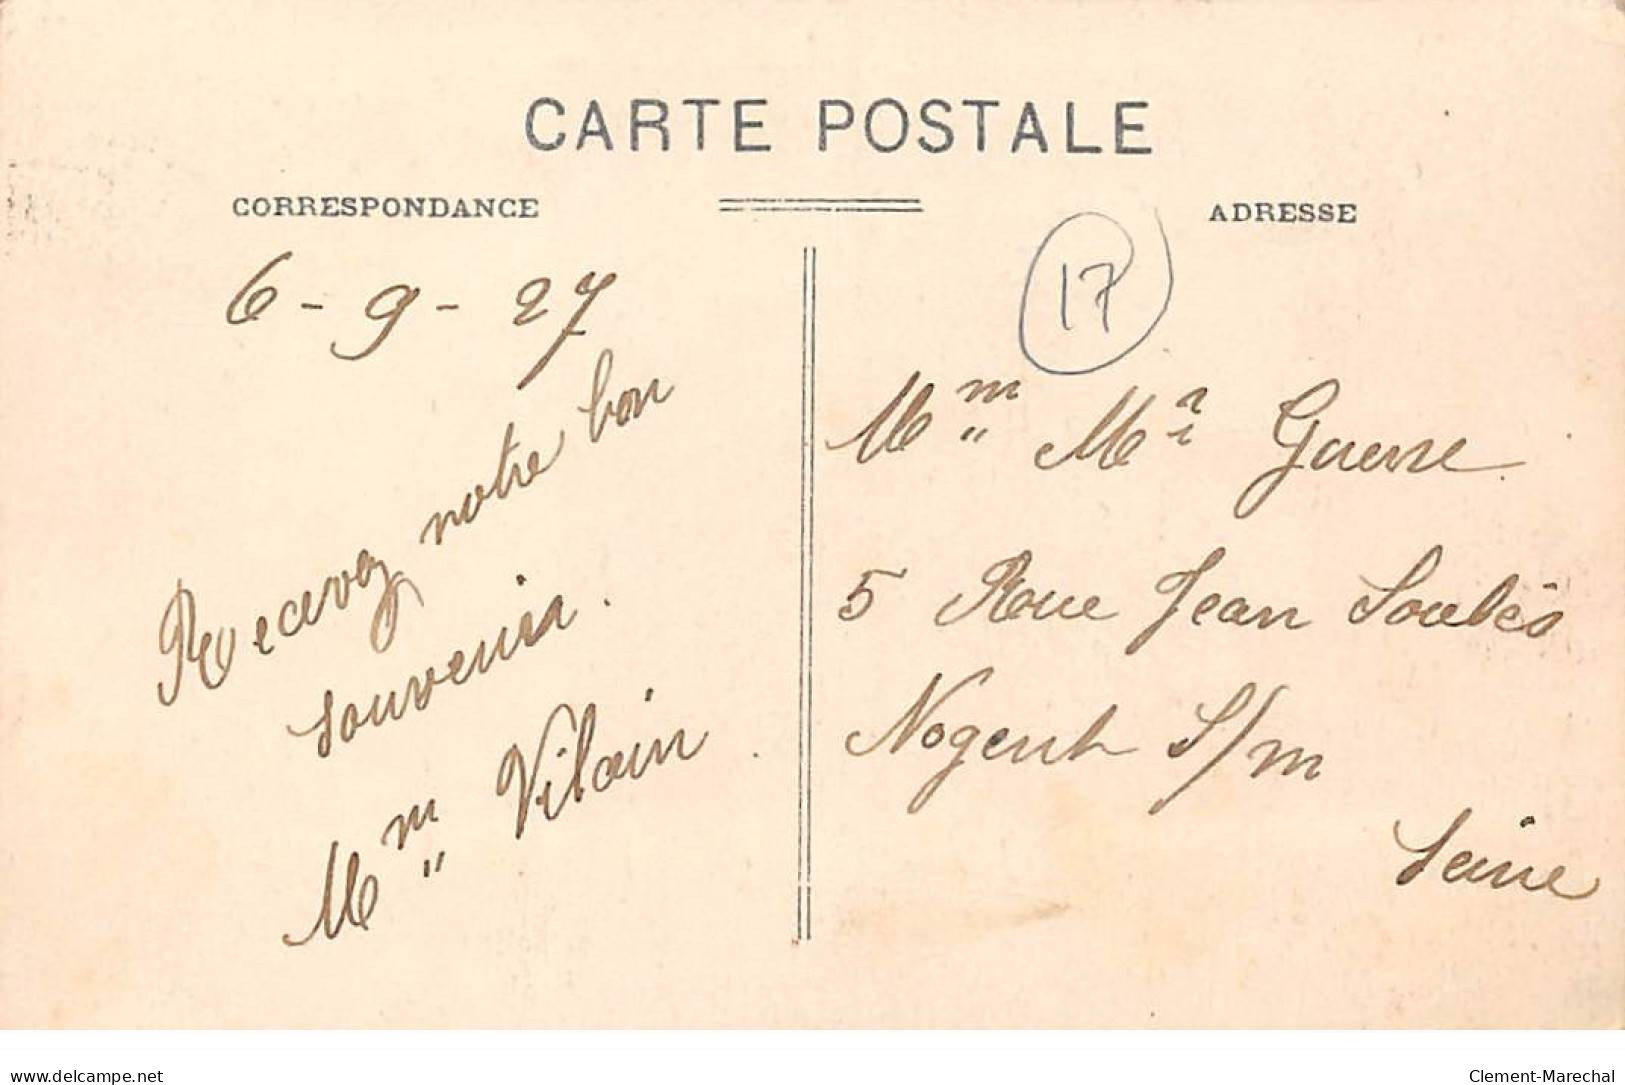 CARTE POSTALE
CORRESPONDANCE
ADRESSE
17
6-9-27
Recevez notre bon
souvenir.
Mm Vilain
Mm Mr Guerre
5 Rue Jean Soulès
Nogent S/m
Seine
delcampe.net
Clement-Marechal